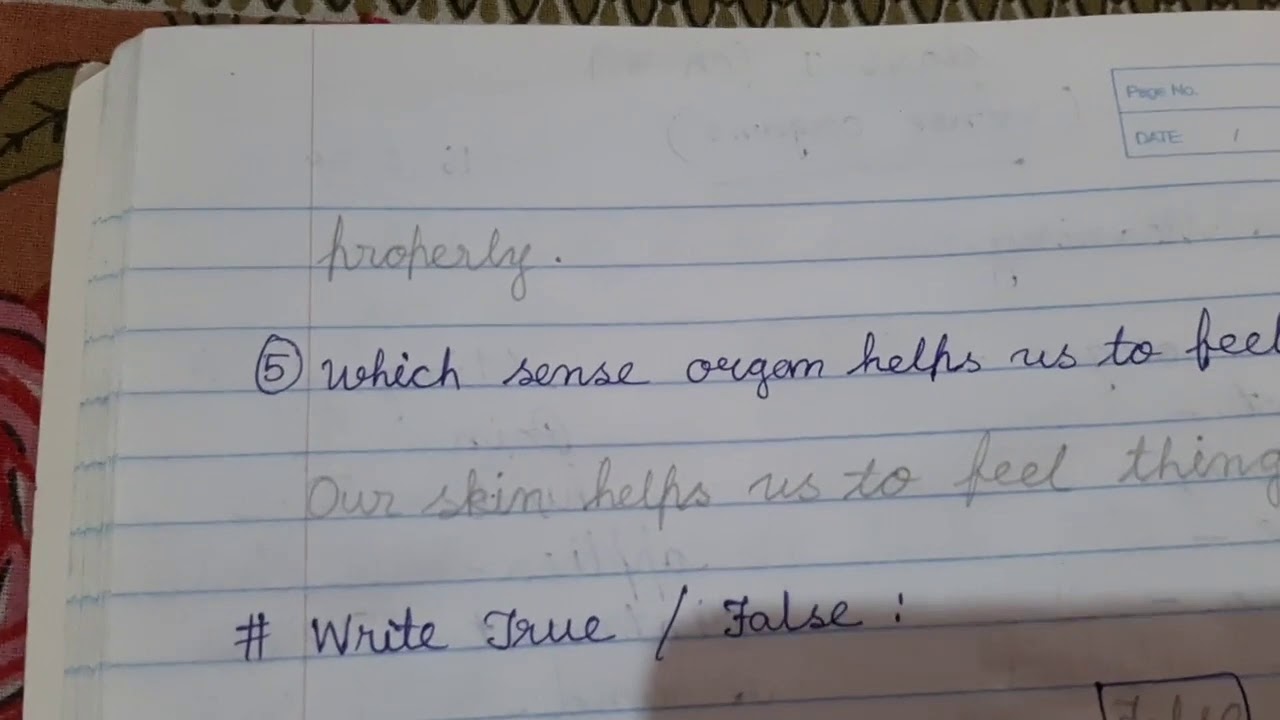 Page No.
DATE: /
properly.
5 which sense organ helps us to feel
Our skin helps us to feel thing
# Write True / False :